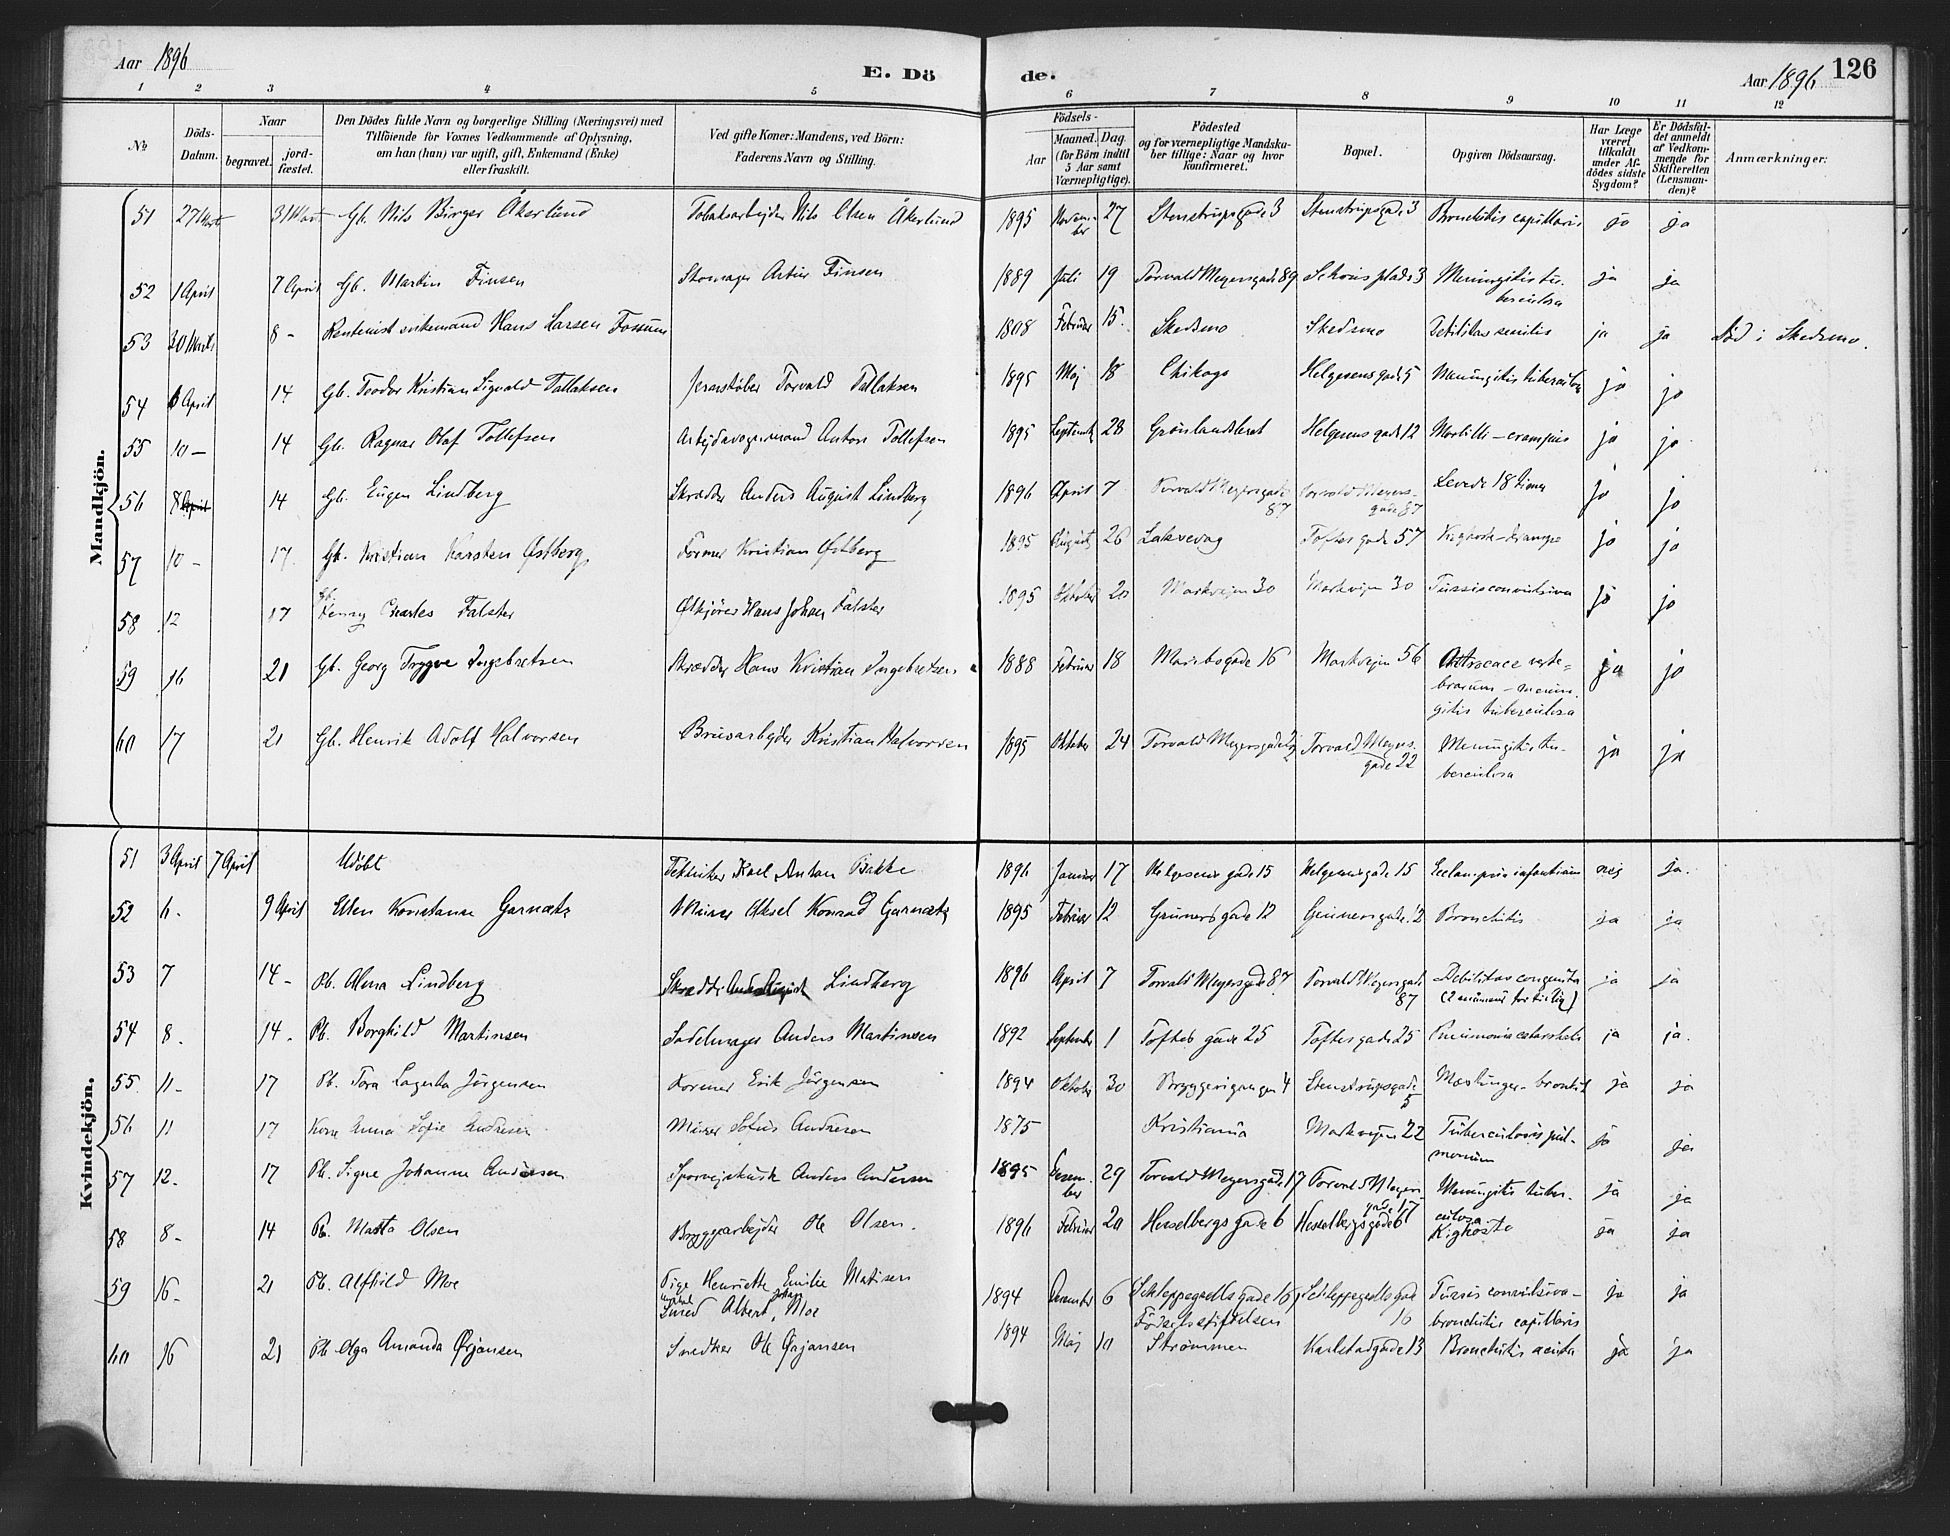 Aar 1896
E. Dö
de.
Aar 1896
126
1 2 3 4 5 6 7 8 9 10 11 12
No
Döds-
Datum.
Naar
begravet.
jord-
fæstet.
Den Dödes fulde Navn og borgerlige Stilling (Næringsvei) med
Tilföiende for Voxnes Vedkommende af Oplysning,
om han (hun) var ugift, gift, Enkemand (Enke)
eller fraskilt.
Ved gifte Koner: Mandens, ved Börn:
Faderens Navn og Stilling.
Födsels-
Aar
Maaned.
Dag.
(for Börn indtil
5 Aar samt
Værnepligtige).
Födested
og for værnepligtige Mandska-
ber tillige: Naar og hvor
konfirmeret.
Bopæl.
Opgiven Dödsaarsag.
Har Læge
været
tilkaldt
under Af-
dödes sidste
Sygdom?
Er Dödsfal-
det anmeldt
af Vedkom-
mende for
Skifteretten
(Lensman-
den)?
Anmærkninger:
Mandkjön.
51 27 Marts 31 Marts Gb. Nils Birger Åkerlund Tobaksarbejder Nils Olsen Åkerlund 1895 Novem- 27 Stenstrupsgade 3 Stenstrupsgade 3 Bronchitis capillaris ja ja
ber
52 1 April 7 April Gb. Martin Finsen Skomager Finsen 1889 Juli 19 Torvald Meyersgade 89 Schous plads 3 Meningitis tu- ja ja
berculosa
53 30 Marts 8 - Rentenist enkemand Hans Larsen 1808 Februar 15. Skedsmo Skedsmo Debilitas senilis ja ja Död i Skedsmo.
54 April 14 Gb. Teodor Kristian Sigvald Tallaksen Jernstøber Torvald Tallaksen 1895 Maj 18 Chikago Helgesensgade 5 Meningitis tuberculosa ja ja
55 10 - 14 Gb. Ragnar Olaf Tollefsen Anton Tollefsen 1895 Septemb 28 Grønlandsleret Helgesens gade 12 Morbilli - ja ja
56 8 April 14 Gb. Eugen Lindberg Skrædder Anders August Lindberg 1896 April 7 Torvald Meyersgade Torvald Meyers- Levede 18 timer ja ja
87 gade 87
57 10 - 17. Gb. Kristian Karsten Østberg, Former Kristian Østberg 1895 August 26 Laksevag Toftes gade 57 Kighoste - ja ja
58 12 17 Gb. Charles Falster Ølkjører Hans Johan Falster 1895 Oktober 20 Markvejen 30 Markvejen 30 Tussis convulsiva ja ja
59 16 21 Gb. Georg Trygve Ingebretsen Skrædder Hans Kristian Ingebretsen 1888 Februar 18 Maribogade 16 Markvejen 56 verte- ja ja
brarum - menin-
gitis tuberculosa
60 17 21 Gb. Henrik Adolf Halvorsen Kristian Halvorsen 1895 Oktober 24 Torvald Meyersgade 22 Torvald Meyers- Meningitis tu- ja ja
gade 22 berculosa
Kvindekjön.
51 3 April 7 April Udøbt Tekniker Karl Anton Bakke 1896 Januar 17 Helgesens gade 15 Helgesensgade 15 Eclampsia infantium nej ja.
52 6 - 9 April Ellen Konstanse Garnæts Murer Aksel Konrad Garnæts 1895 Februar 12 Grünersgade 12 Grünersgade 12 Bronchitis ja ja
53 7 14 - Pb. Alma Lindberg Skrædder August Lindberg 1896 April 7 Torvald Meyersgade 87 Torvald Meyersgade Debilitas congenita ja ja
87 (2 maaned for tidlig)
54 8 - 14 - Pb. Borghild Martinsen Sadelmager Anders Martinsen 1892 September 1 Toftes gade 25 Toftes gade 25 Pneumonia catarrhalis ja ja.
55 11 - 17 Pb. Tora Lagerta Jørgensen Former Erik Jørgensen 1894 Oktober 30 Bryggerigangen 4 Stenstrupsgade Mæslinger - bronkit ja ja
5
56 11 17 Kone Anna Sofie Andresen Murer Sofus Andresen 1875 Kristiania Markvejen 22 Tuberculosis pul- ja ja
monum
57 12 - 17 Pb. Signe Johanne Andersen Sporvejskusk Anders Andersen 1895 Decem- 29 Torvald Meyersgade 17 Torvald Meyers- Meningitis tuber- ja ja
ber gade 17 culosa
58 8 - 14 Pb. Marta Olsen Bryggearbejder Ole Olsen. 1896 Februar 20 Hesselbergs gade 6 Hesselbergsgade 6 Kighoste ja ja
59 16 - 21 Pb. Alfhild Moe Pige Henriette Emilie Matisen 1894 December 6 Schleppegrells gade 16 Schleppegrells gade Tussis convulsiva - ja ja
Smed Albert Johan Moe Fødselsstiftelsen 16 bronchitis capillaris
60 16 21 Pb. Olga Amanda Ørjansen Snedker Ole Ørjansen 1894 Maj 10 Strømmen Karlstadgade 13 Bronchitis acuta ja ja